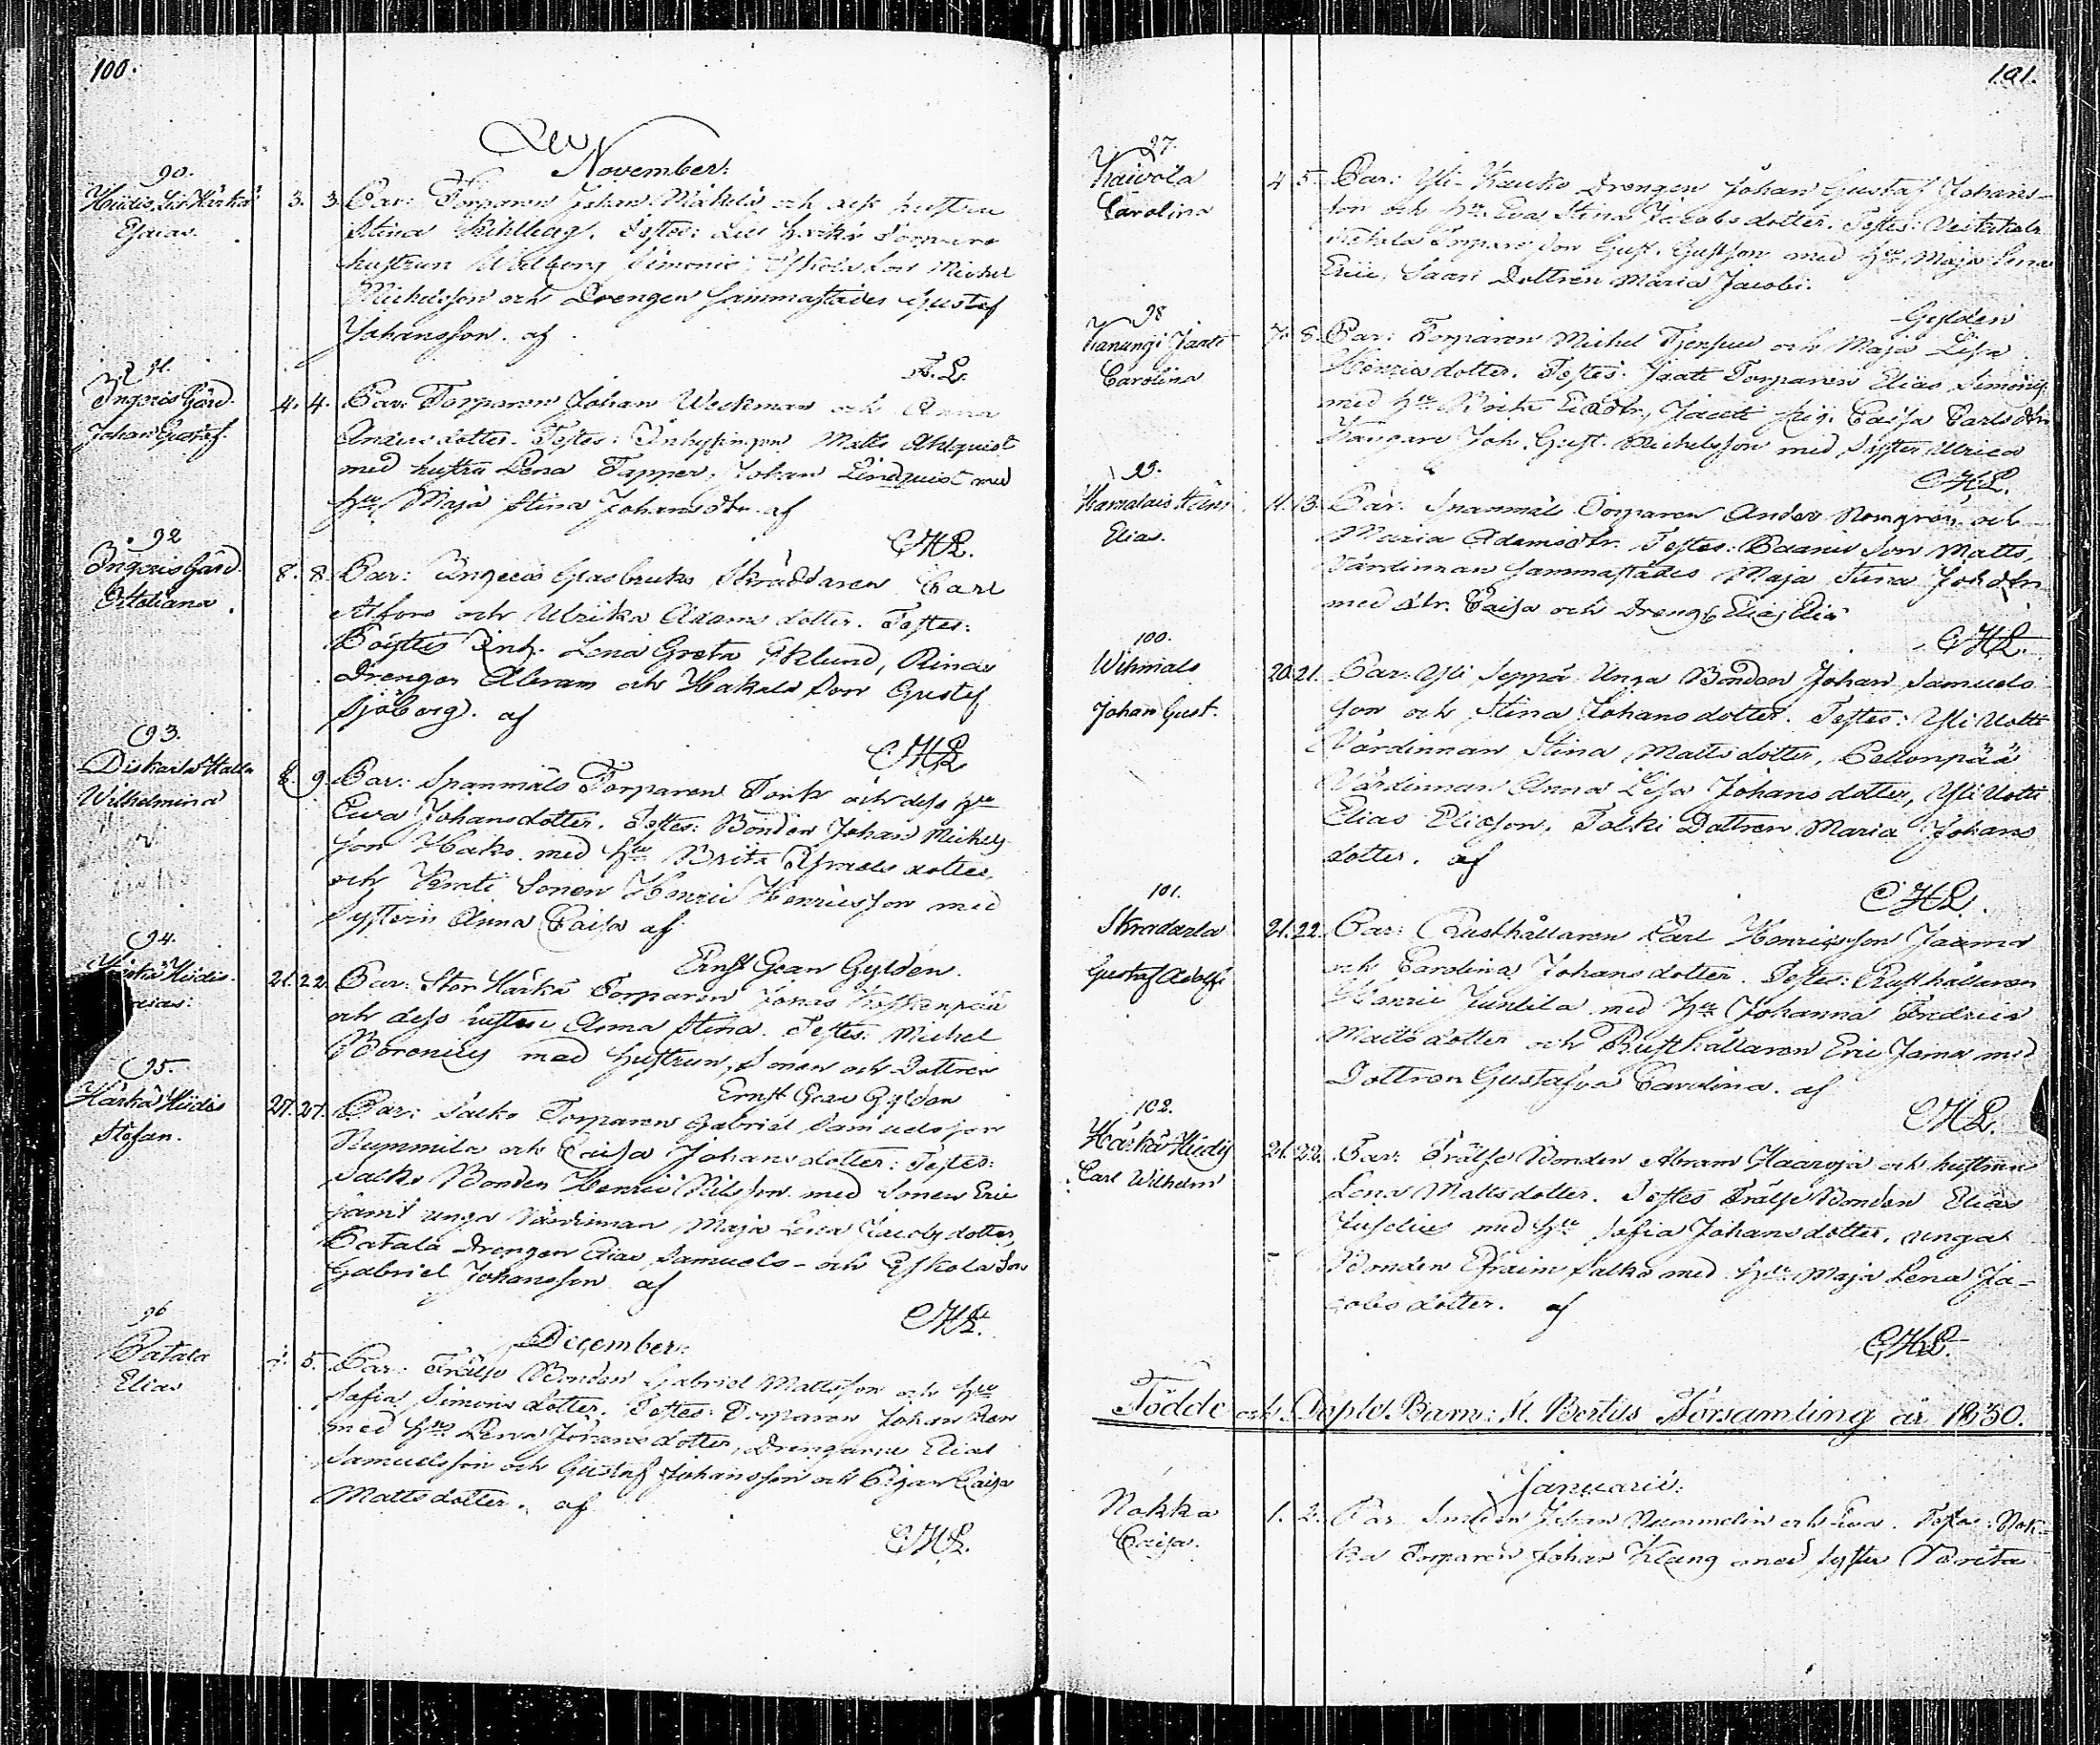 100.
November:
90.
Hiidis Lis Härkä
Esaias.
3. 3. Par: Torparen Johan Mäkelä och dess hustru
Stina Kihlberg. Testes: Lill Härkä Torpare
hustrun Walborg Simonis, Eskola Son Michel
Michelsson och Drengen sammastädes Gustaf
Johansson. af
91.
Ingeris Gård.
Johan Gustaf.
4. 4. Par: Torparen Johan Weckman och Anna
Andersdotter. Testes: Inhysingen Matts Ahlquist
med hustru Lena Tapper, Johan Lindquist med
Hu Maja Stina Johansdtr. af
CHL.
92
Ingeris Gård.
8. 8. Par: Ingeris Glasbruks Skräddaren Carl
Alfors och Ulrika Adamsdotter. Testes:
Inh. Lena Greta Eklund,
Drengen Abram och Hakala Son Gustaf
Sjöberg. af
CHL
93.
Diskarla Kalla
Wilhelmina
8. 9. Par: Spanmåls Torparen Fonk och dess Hu
Ewa Johansdotter. Testes: Bonden Johan Michels
son Hako med Hu Brita Ismaelsdotter,
och Sonen Henric Henricsson med
Systern Anna Caisa af
Ernst Gean Gyldén.
94.
Härkä Hiidis.
21. 22. Par: Stor Härkä Torparen Jonas Koskenpää
och dess hustru Anna Stina. Testes: Michel
med hustrun, Sonen och Dottren
Ernst Gean Gyldén
95.
Härkä Hiidis
Stefan.
27. 27. Par: Salko Torparen Gabriel Samuelsson
Nummila och Caisa Johansdotter: Testes:
Salko Bonden Henric Nilsson med Sonen Eric
jämt unga Värdinnan Maja Lena Jacobsdotter,
Patala Drengen Elias Samuels- och Eskola Son
Gabriel Johansson af
CHL.
December:
96
Patala
Elias
5. Par: Frälse Bonden Gabriel Mattsson och Hu
Sofia Simonsdotter. Testes: Torparen Johan
med Hu Lena Johansdotter, Drengarne Elias
Samuelsson och Gustaf Johansson och Pigan Caisa
Mattsdotter. af
CHL.
101.
97.
Kaivola
Carolina
4. 5. Par: Yli-Kauko Drengen Johan Gustaf Johans-
son och Hu. Eva Stina Jacobsdotter. Testes:
Torpare Son Gust. Gustsson med Hu Maja Lena
Eric, Saari Dottren Maria Jacobi.
Gylden
98
Kanungi Jaati
Carolina
7. 8. Par: Torparen Michel och Maja Lisa
Henricsdotter. Testes: Jaati Torparen Elias Simons
med Hu Brita Jaati Pig. Caisa Carlsdtr
Joh. Gust. Michelsson med Syster Ulrica
CHL.
99.
Elias.
11. 13. Par: Spanmåls Torparen Anders och
Maria Adamsdtr. Testes: Son Matts,
Värdinnan sammastädes Maja Stina Johdtr
med dtr. Caisa och Dreng Elias
CHL.
100.
Wihmala
Johan Gust.
20. 21. Par: Yli Seppä Unga Bonden Johan Samuels
son och Stina Johansdotter. Testes: Yli Uotti
Värdinnan Stina Mattsdotter, Pellonpää
Värdinnan Anna Lisa Johansdotter, Yli Uotti
Elias Eliasson, Talki Dottren Maria Johans
dotter. af
CHL.
101.
Skradarla
Gustaf Adolf.
21. 22. Par: Rusthållaren Carl Henricsson Jaama
och Carolina Johansdotter. Testes: Rusthållaren
Henric Juntila med Hu Johanna Fredrica
Mattsdotter och Rusthållaren Eric Jama med
Dottren Gustafva Carolina. af
CHL.
102.
Härkä Hiidis
Carl Wilhelm
21. 22. Par: Frälse Bonden Abram Haaroja och hustrun
Lena Mattsdotter. Testes Frälse Bonden Elias
med Hu Sofia Johansdotter, unga
Bonden Efraim Salko med Hu Maja Lena Ja-
cobsdotter. af
CHL.
Födde och Döpte Barn i St. Bertils Församling år 1830.
Januarii:
Nokka
Caisa.
1. 2. Par: Smeden Johan Nummelin och Eva. Testes: Nok-
ka Torparen Johan Klang med syster Brita